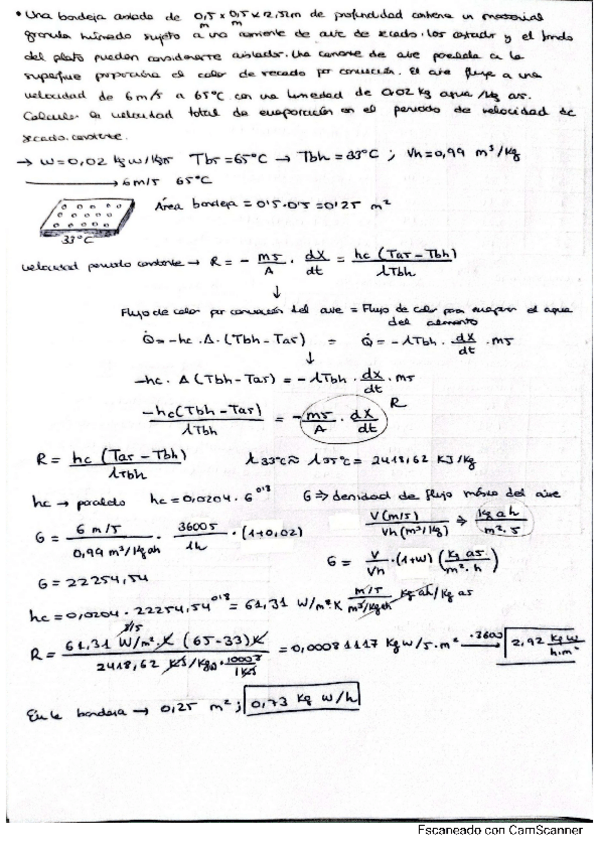 • Una bandeja aislada de 0,5 m x 0,5 m x 12,52m de profundidad contiene un material
granula húmedo sujeto a una corriente de aire de secado. Los costados y el fondo
del plato pueden considerarse aislados. Una corriente de aire paralela a la
superficie proporciona el calor de secado por convección. El aire fluye a una
velocidad de 6 m/s a 65°C con una humedad de 0,02 kg agua/kg as.
Calcule la velocidad total de evaporación en el periodo de velocidad de
secado constante.
→ W=0,02 kg w/kg as Tbs=65°C → Tbh=33°C ; Vh=0,99 m³/kg
→ 6 m/s 65°C
Área bandeja = 0'5·0'5=0'25 m²
33°C
Velocidad periodo constante → R = - ms/A · dX/dt = hc (Tas-Tbh)/λTbh
↓
Flujo de calor por convección del aire = Flujo de calor para evaporar el agua
del alimento
Q̇=-hc·A·(Tbh-Tas) = Q̇=-λTbh·dX/dt·ms
↓
-hc·A(Tbh-Tas) = -λTbh·dX/dt·ms
-hc(Tbh-Tas)/λTbh = -ms/A·dX/dt R
R = hc (Tas-Tbh)/λTbh λ33°C≈λ35°C= 2418,62 KJ/kg
hc → paralelo hc=0,0204·G^0'8 G ⇒ densidad de flujo másico del aire
G = 6 m/s / 0,99 m³/kg ah · 3600s/1h · (1+0,02)
V(m/s)/Vh(m³/kg) ⇒ kg ah/m²·s
G = V/Vh·(1+W) (kg as/m²·h)
G=22254,54
m/s / m³/kg ah kg ah/kg as
hc=0,0204·22254,54^0'8=61,31 W/m²K
R = 61,31 J/s W/m²·K (65-33)K / 2418,62 KJ/kg·1000J/1KJ = 0,00081117 Kg w/s·m² ·3600→ 2,92 kg w/h·m²
En la bandeja → 0,25 m² ; 0,73 Kg w/h
Escaneado con CamScanner